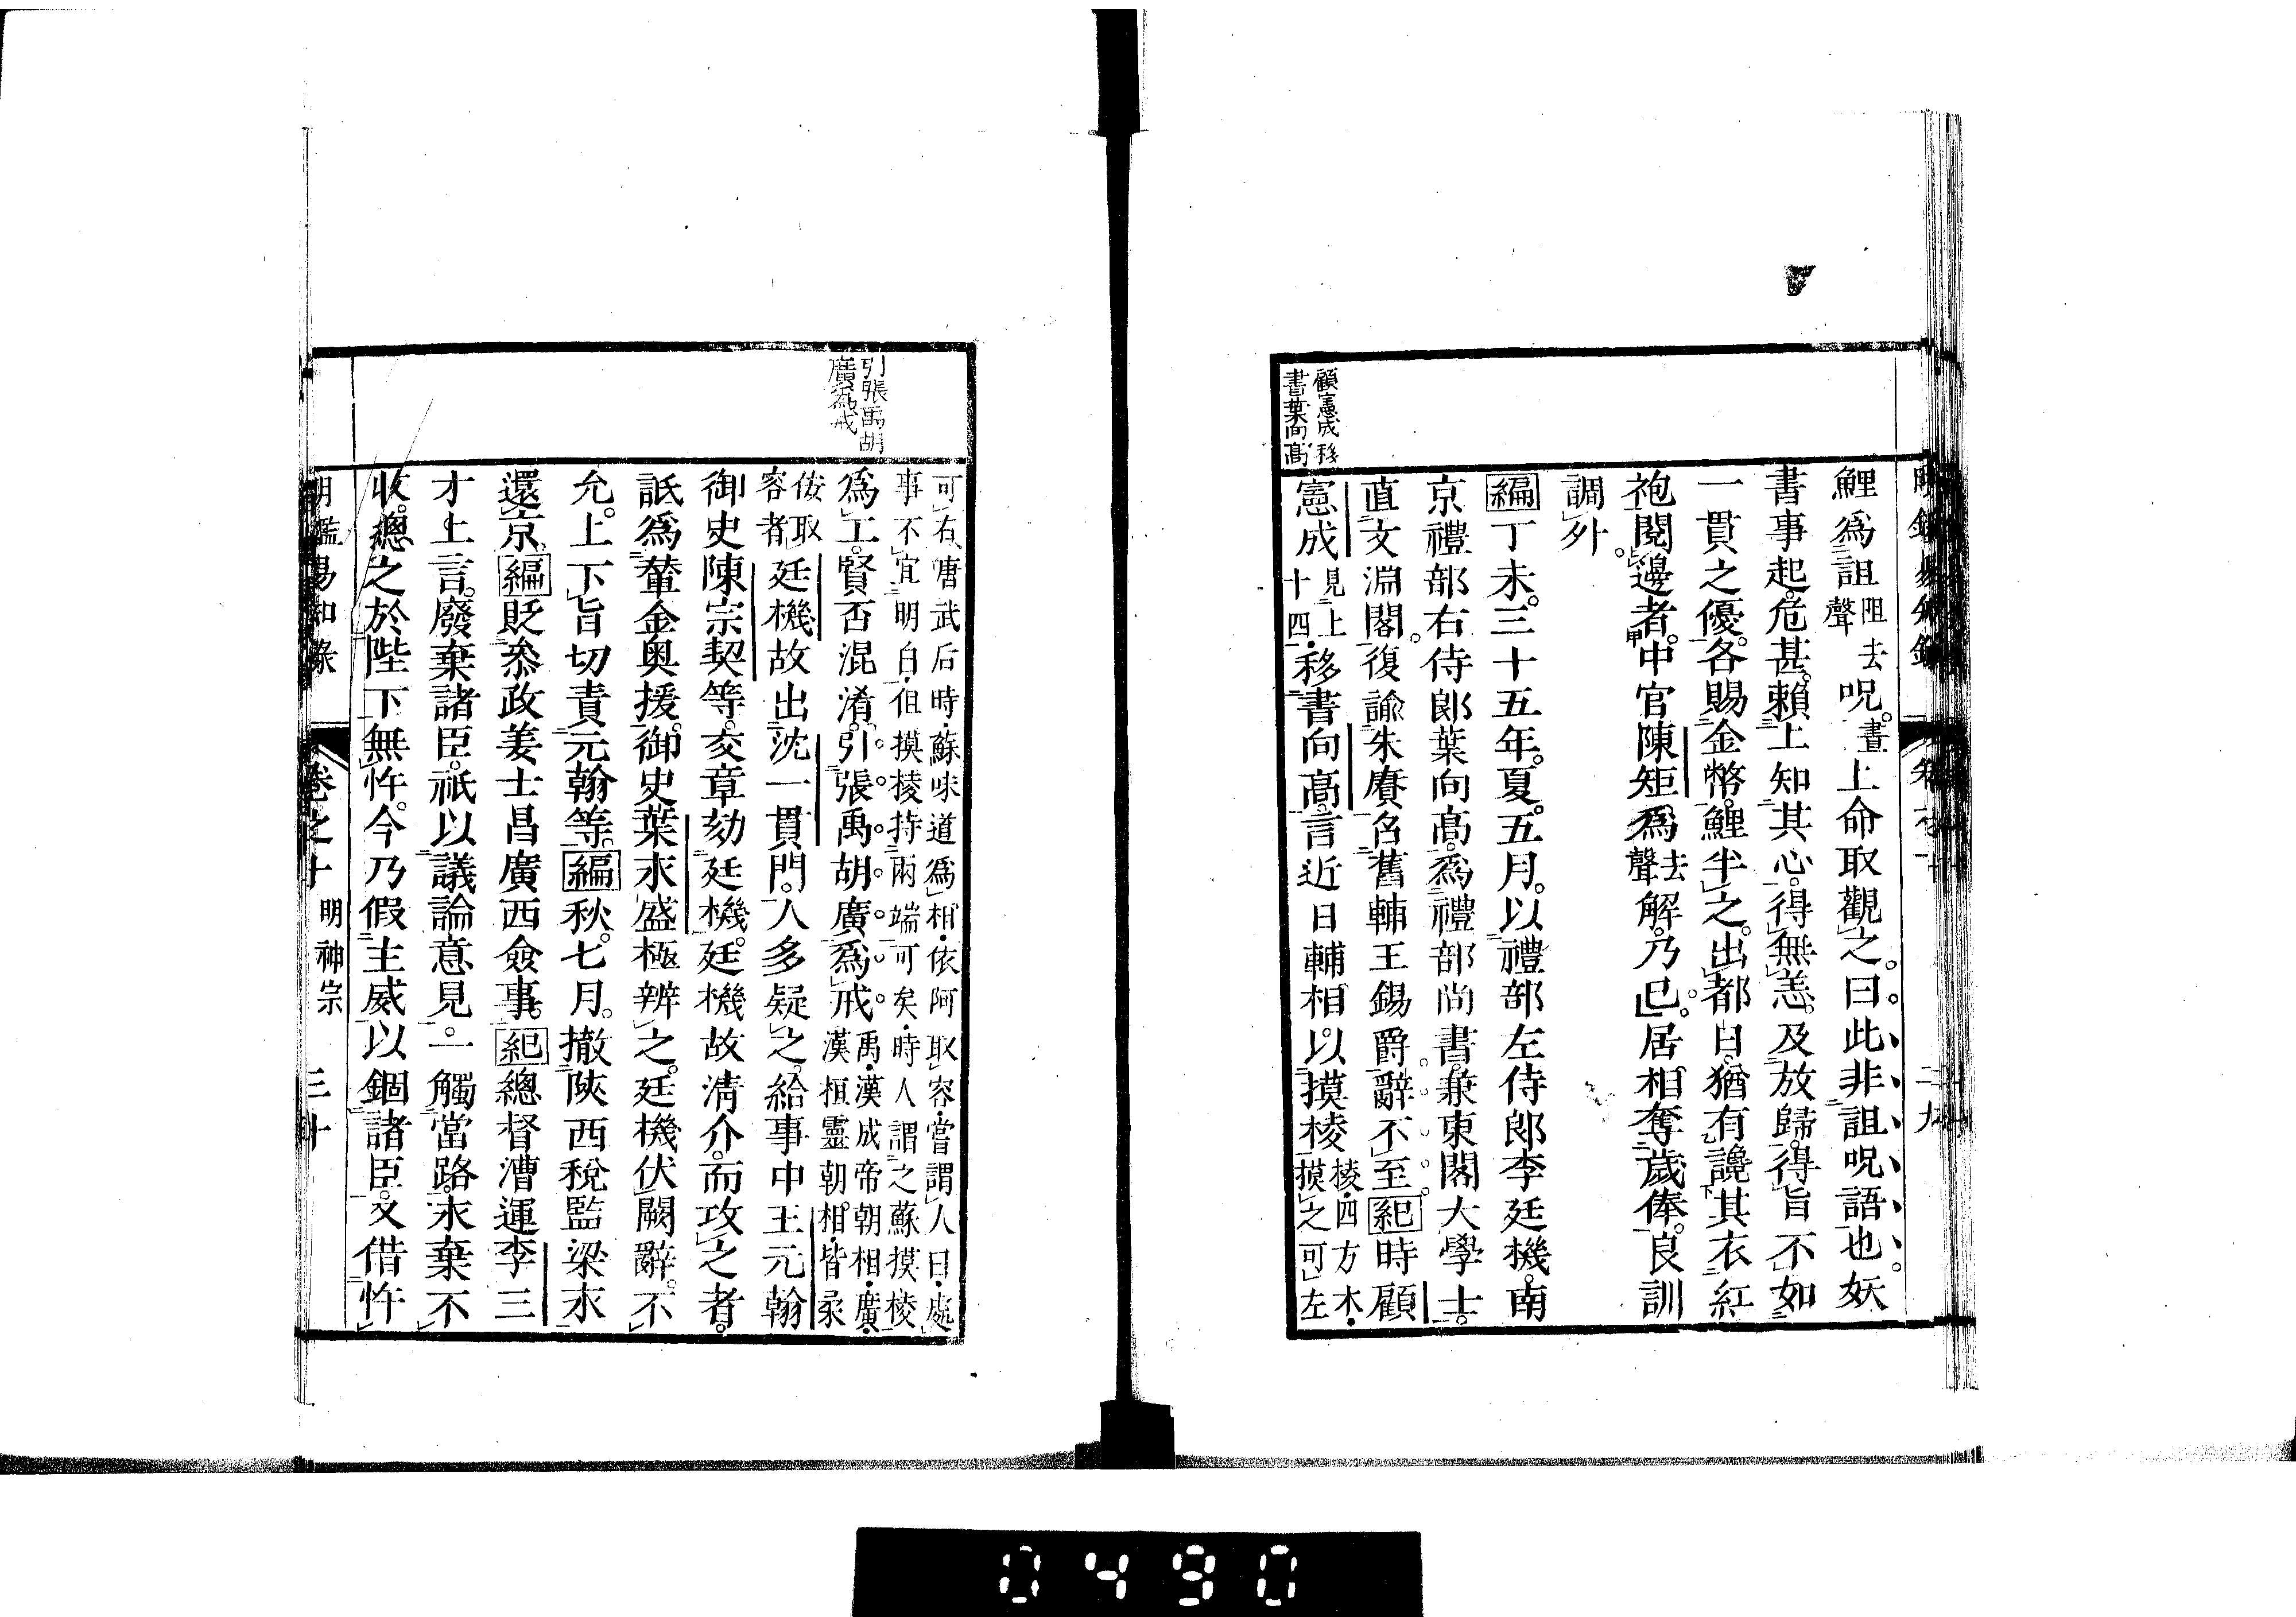 鯉爲詛阻去聲呪晝。上命取觀之。曰。此非詛呪語也。妖
書事起。危甚。賴上知其心。得無恙。及放歸。得旨不如
一貫之優。各賜金幣。鯉半之。出都日。猶有讒其衣紅
袍閱邊者。中官陳矩爲去聲解。乃已。居相奪歲俸。良訓
調外。
編丁未。三十五年。夏。五月。以禮部左侍郎李廷機。南
京禮部右侍郎葉向高。爲禮部尚書。兼東閣大學士。
直文淵閣。復諭朱賡召舊輔王錫爵。辭不至。紀時顧
憲成見上十四移書向高。言近日輔相。以摸棱棱四方木摸之可左
顧憲成移
書葉向高
可右唐武后時蘇味道爲相依阿取容嘗謂人曰處
事不宜明白但摸棱持兩端可矣時人謂之蘇摸棱
爲工。賢否混淆。引張禹胡廣爲戒禹漢成帝朝相廣漢桓靈朝相皆柔
佞取容者廷機故出沈一貫門。人多疑之。給事中王元翰
御史陳宗契等。交章劾廷機。廷機故清介。而攻之者。
詆爲輦金奧援。御史葉永盛極辨之。廷機伏闕辭。不
允。上下旨切責元翰等。編秋。七月。撤陝西稅監梁永
還京。編貶叅政姜士昌廣西僉事。紀總督漕運李三
才上言。廢棄諸臣。祇以議論意見。一觸當路。永棄不
收。總之於陛下無忤。今乃假主威以錮諸臣。又借忤
引張禹胡
廣爲戒
明鑑易知錄 卷之十 明神宗 三十
0490